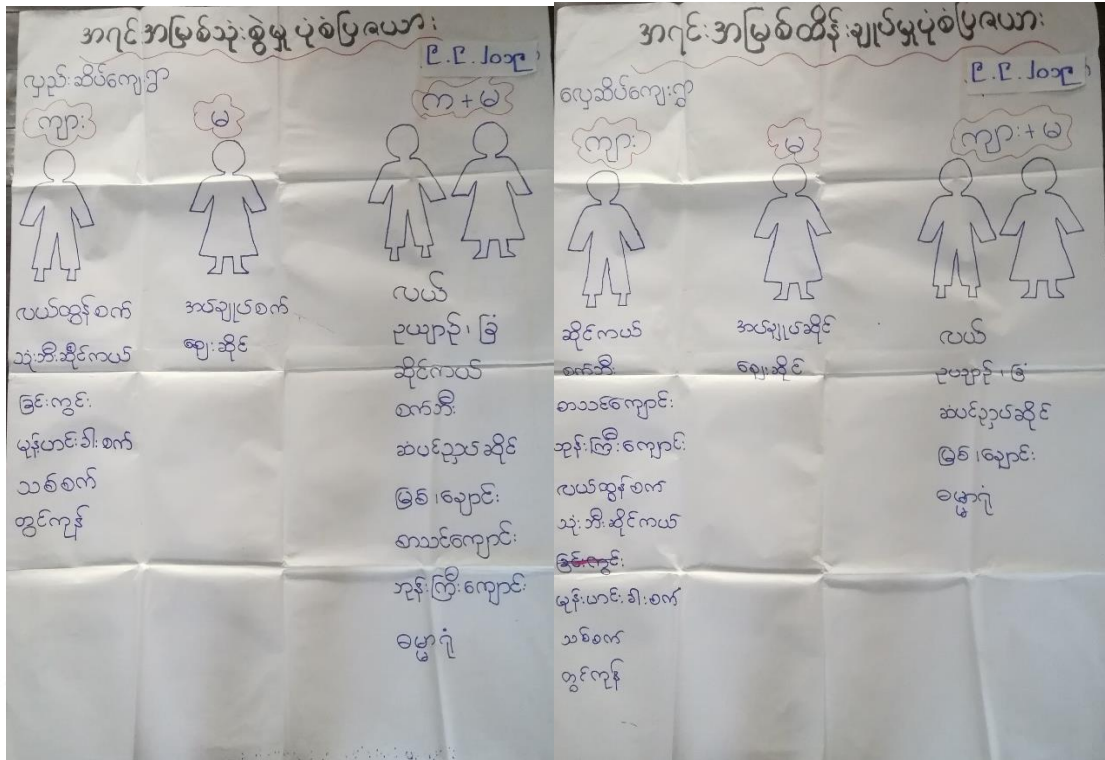 အရင်းအမြစ်သုံးစွဲမှုပုံစံပြဇယား
၉.၉.၂၀၁၉
လှည်းဆိပ်ကျေးရွာ
ကျား
မ
က + မ
လယ်ထွန်စက်
သုံးဘီးဆိုင်ကယ်
ခြင်းကွင်း
မုန့်ဟင်းခါးစက်
သစ်စက်
တွင်ကုန်
အပ်ချုပ်စက်
ဈေးဆိုင်
လယ်
ဥယျာဉ်၊ ခြံ
ဆိုင်ကယ်
စက်ဘီး
ဆံပင်ညှပ်ဆိုင်
မြစ်၊ချောင်း
စာသင်ကျောင်း
ဘုန်းကြီးကျောင်း
ဓမ္မာရုံ
အရင်းအမြစ်ထိန်းချုပ်မှုပုံစံပြဇယား
၉.၉.၂၀၁၉
လှေဆိပ်ကျေးရွာ
ကျား
မ
ကျား + မ
ဆိုင်ကယ်
စက်ဘီး
စာသင်ကျောင်း
ဘုန်းကြီးကျောင်း
လယ်ထွန်စက်
သုံးဘီးဆိုင်ကယ်
ခြင်းကွင်း
မုန့်ဟင်းခါးစက်
သစ်စက်
တွင်ကုန်
အပ်ချုပ်ဆိုင်
ဈေးဆိုင်
လယ်
ဥယျာဉ်၊ ခြံ
ဆံပင်ညှပ်ဆိုင်
မြစ်၊ချောင်း
ဓမ္မာရုံ